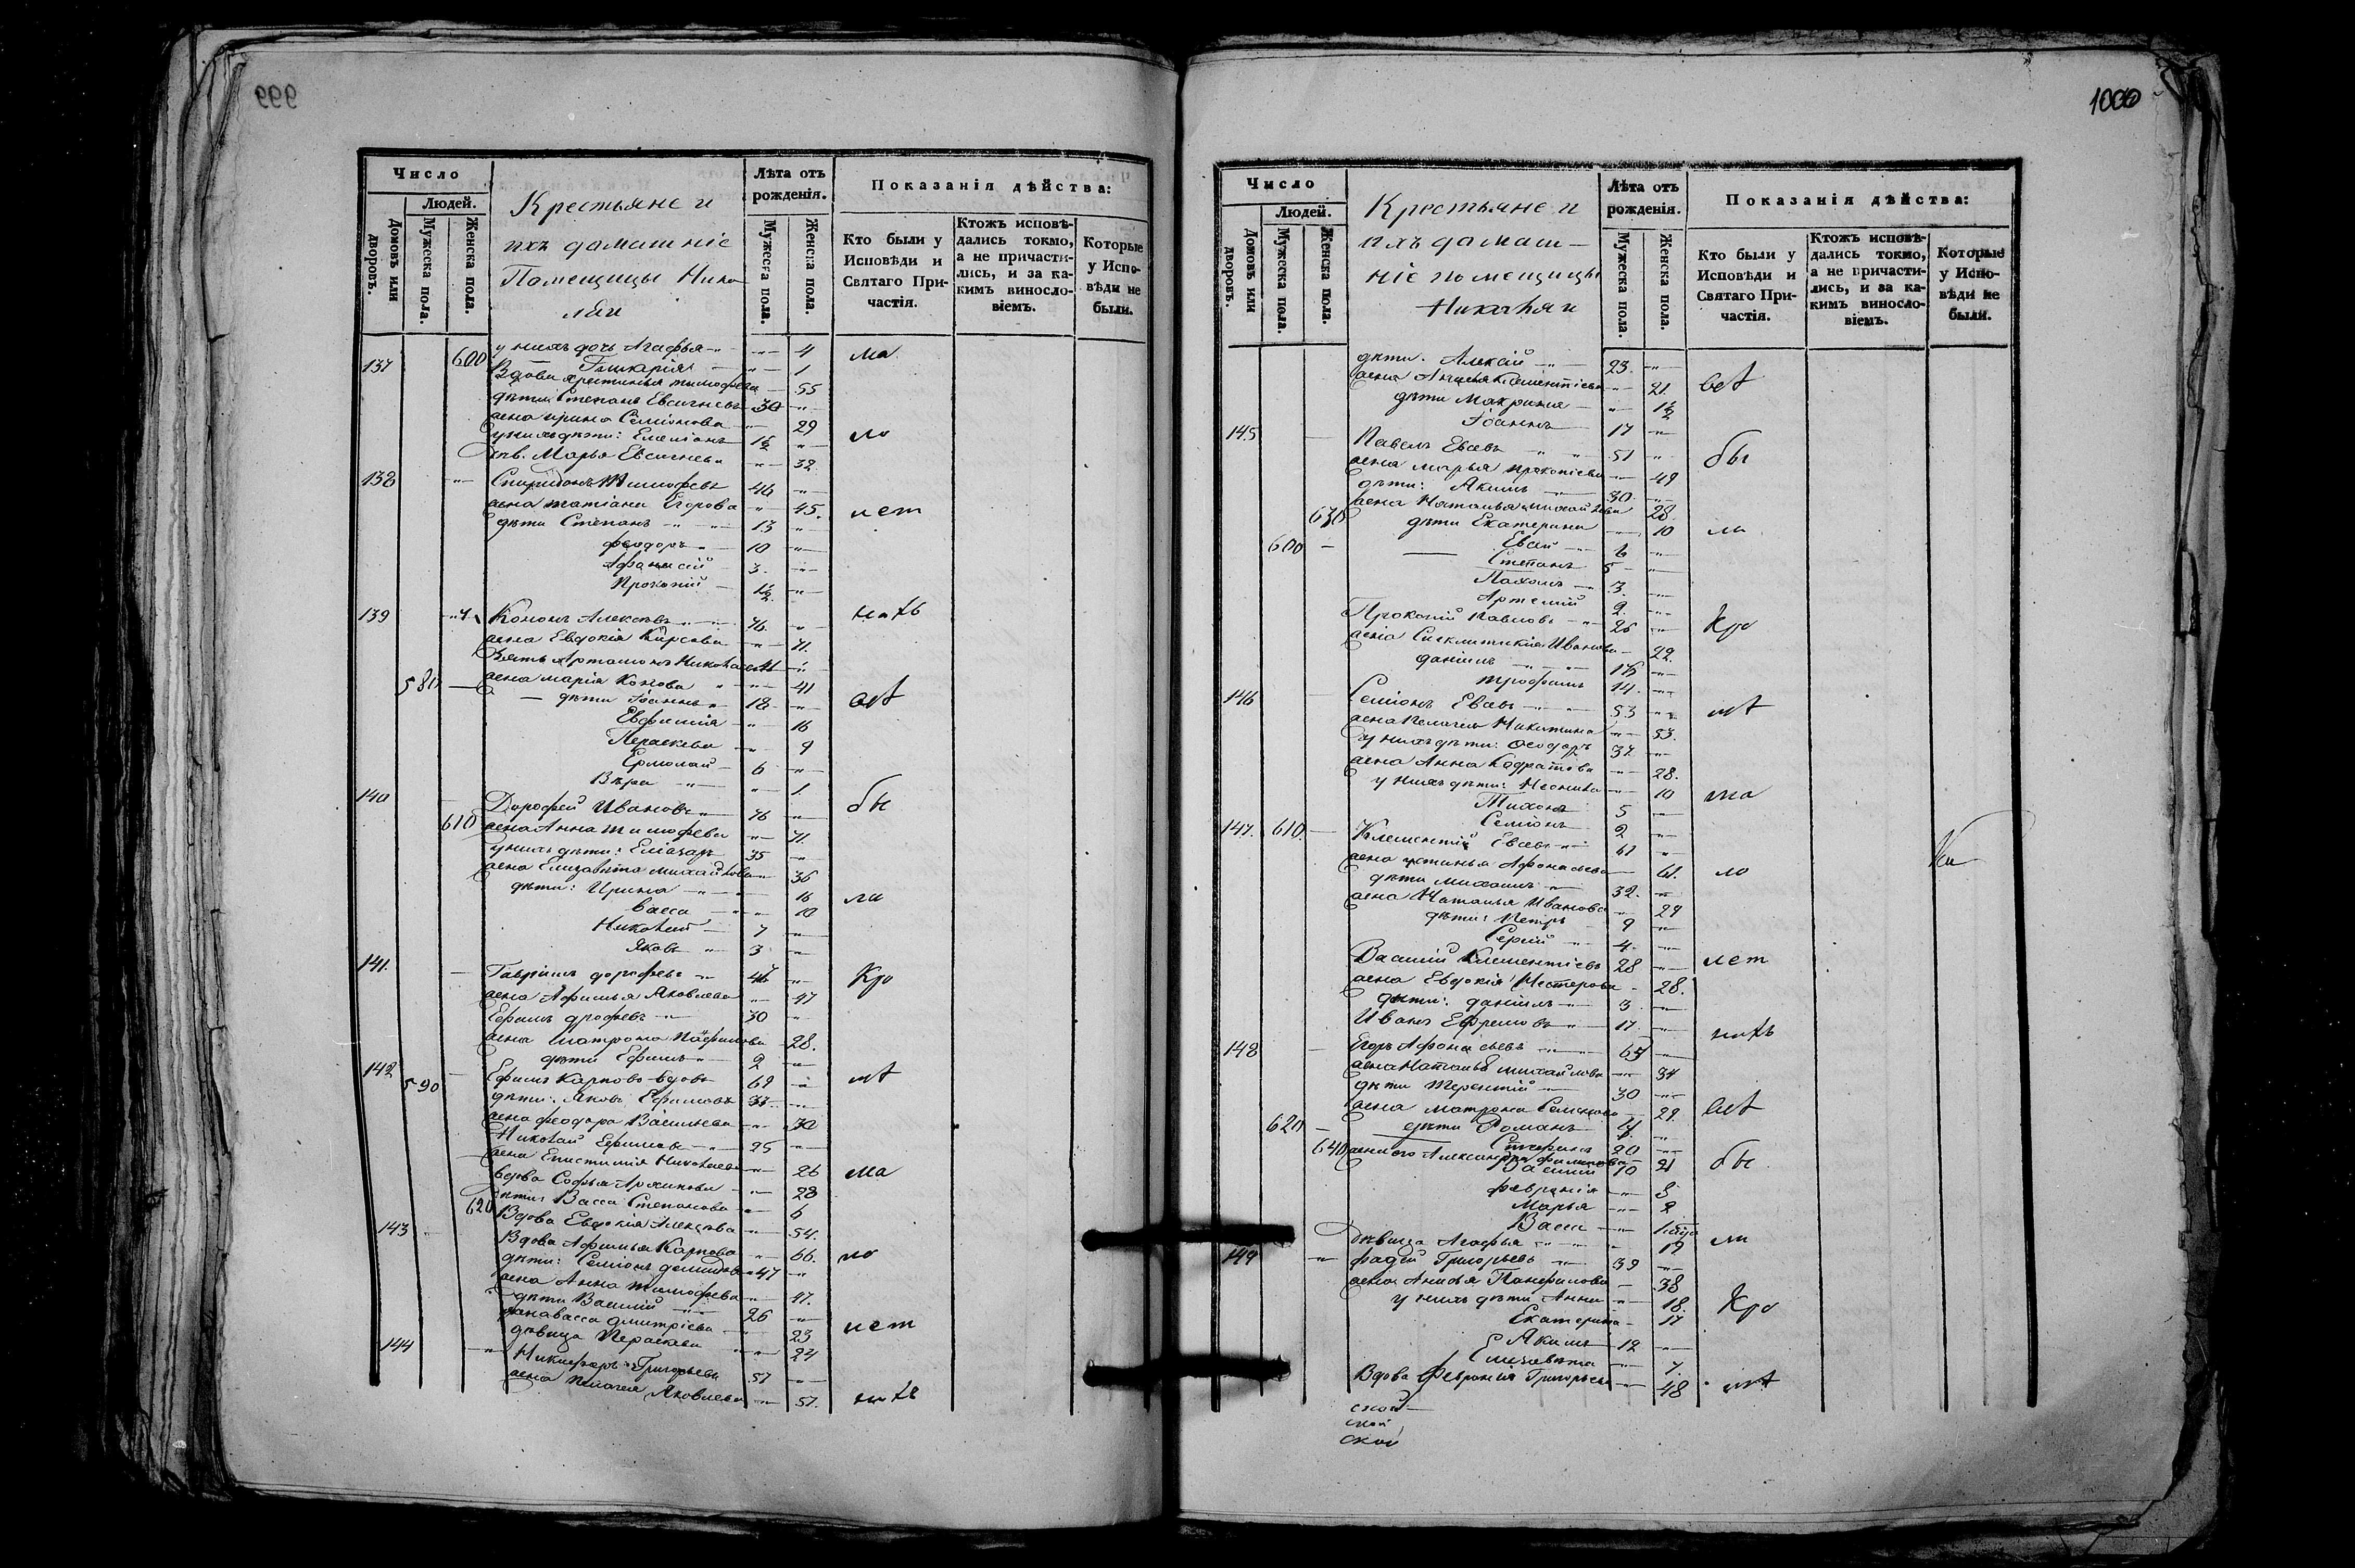 999
Число
Людей.
Домовъ или дворовъ.
Мужеска пола.
Женска пола.
Крестьяне и
ихъ домашніе
Помещицы Нико
лаи
Лѣта отъ рожденія.
Мужеска пола.
Женска пола.
Показанія дѣйства:
Кто были у Исповѣди и Святаго Причастія.
Ктожъ исповѣдались токмо, а не причастились, и за какимъ винословіемъ.
Которые у Исповѣди не были.
600 у нихъ дочь Агафья 4 ма
1
137 Вдова Христинья Тимофѣева 55
дѣти Степанъ Евсигнеевъ 30
жена Ирина Семіонова 29
у нихъ дѣти: Емеліанъ 1½ ло
Марья Евсигнева 32
138 Спиридонъ Тимофевъ 46
жена татіана Егорова 45. лет
дѣти Степанъ 13
феодоръ 10
Афанасій 3.
Прокопій 1½
139 Кононъ Алексѣевъ 76. нихъ
жена Евдокія Кирсова 71.
Зять Артамонъ Николаевъ
580 жена Марія Конова 41
дѣти Іоаннъ 18 всѣ
Евфимія 16
Пераскева 9
Ермолай 6
Вѣра 1.
140 Дорофей Ивановъ 76 бы
610 жена Анна Тимофева 71.
у нихъ дѣти: Еліазаръ 35
жена Елизавѣта Михайлова 36
дѣти: Ирина 16 ли
Васса 10
Николай 7
Яковъ 3
141. Гавріилъ дорофеевъ Кро
жена Афимья Яковлева 47
Ефимъ дрофѣевъ 30
жена Матрона Панфилова 28.
дѣти Ефимъ 2
142 590 Ефимъ Карповъ вдовъ 69 мѣ
дѣти: Яковъ Ефимовъ 37
жена феодора Васильева 30
Николай Ефимовъ 25
жена Епистимія Николаева 26 ма
Вдова Софья Архипова 28
дѣти: Васса Степанова 6
620 Вдова Евдокія Алексѣва 54.
143 Вдова Афимья Карпова 66. ло
дѣти: Семіонъ демидовъ 47
жена Анна Тимофева 47.
дѣти Василій 26
жена васса дмитріева 23 лет
дѣвица Пераскева 24
144 Никифоръ Григорьевъ 57
жена Пелагея Яковлева 57. нихъ
1000
Число
Людей.
Домовъ или дворовъ.
Мужеска пола.
Женска пола.
Крестьяне и
ихъ домаш-
ніе помещицы
Николаи
Лѣта отъ рожденія.
Мужеска пола.
Женска пола.
Показанія дѣйства:
Кто были у Исповѣди и Святаго Причастія.
Ктожъ исповѣдались токмо, а не причастились, и за какимъ винословіемъ.
Которые у Исповѣди не были.
дѣти. Алексій 23.
жена Клементіева 21. всѣ
дѣти Макрина 1½
Іоаннъ 17
145 Павелъ Евсевъ 51 бы
жена Марья Прокопіева 49
дѣти: Акимъ 30.
жена Наталья Михайлова 28
630 дѣти Екатерина 10 ли
600 Евсей 6
Степанъ 5
Пахомъ 3.
Артемій 2.
Прокопій Павловъ 26 Кро
жена Сигклитикія Иванова 22.
даніилъ 16
трофимъ 14.
146 Семіонъ Евсевъ 53 мѣ
жена Пелагея Никитина 53.
у нихъ дѣти: Феодоръ 37.
жена Анна Кодратова 28.
у нихъ дѣти: Неонила 10 ма
Тихонъ 5
Семіонъ 2
147. 610. Клементій Евсевъ 61
жена устинья Афонасьева 61. ло
дѣти Михаилъ 32.
жена Наталья Иванова 29
дѣти: Петръ 9
Сергій 4.
Василій Клементіевъ 28 лет
жена Евдокія Нестерова 28.
дѣти: даніилъ 3
Иванъ Ефремовъ 17. нихъ
148 Егоръ Афонасьевъ 65
жена Наталья Михайлова 34
дѣти Терентій 30
жена Матрона Семенова 29. всѣ
620 дѣти Романъ
Стефанъ 20
640 жена его Александра филипова 21 бы
Василій 10
февронія 8
Марья 2
Васса
Дѣвица Агафья 19 ли
149 фадей Григорьевъ 39
жена Анисья Панфилова 38
у нихъ дѣти Анна 18. Кро
Екатерина 17
Акимъ 12
Елизавѣта 7.
Вдова Февронія Григорьева 48 мѣ